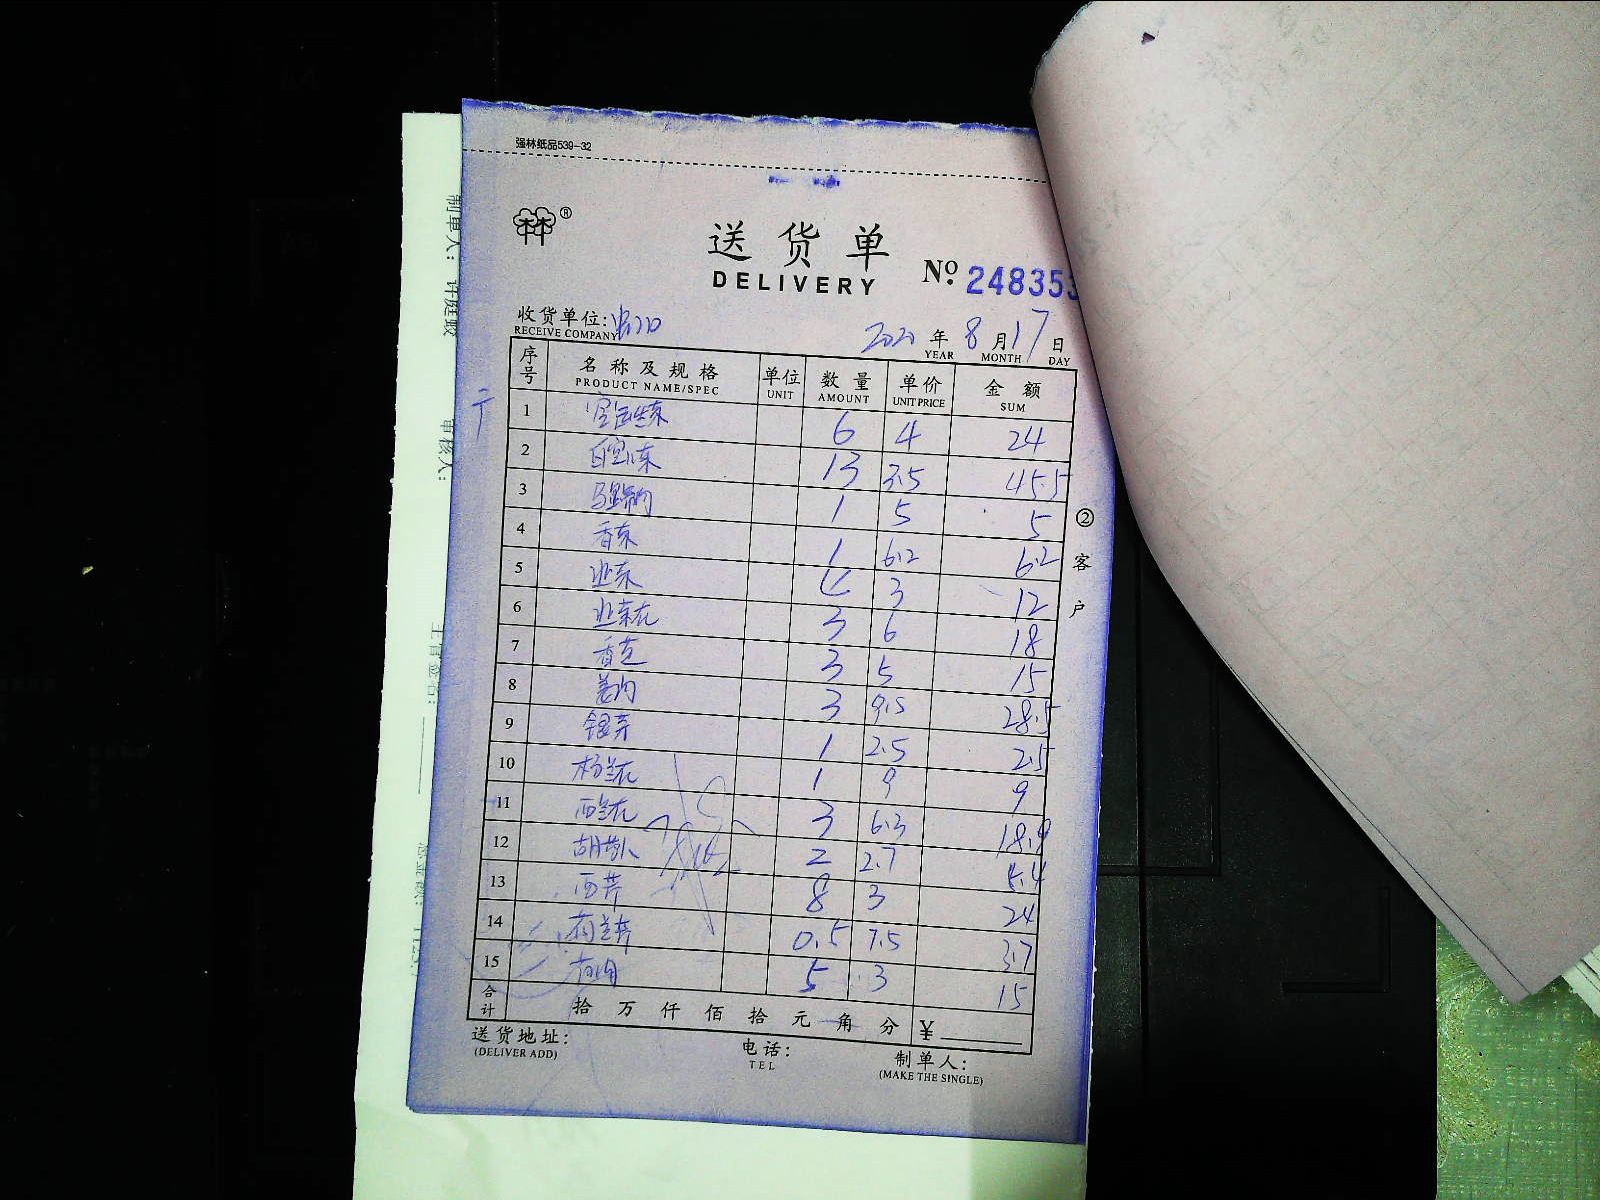 强林纸品539-32
林林®
送货单
DELIVERY
№ 248353
收货单位:
RECEIVE COMPANY
2020 年 8 月 17 日
YEAR MONTH DAY
序号 名称及规格 单位 数量 单价 金额
PRODUCT NAME/SPEC UNIT AMOUNT UNIT PRICE SUM
1 6 4 24
2 13 3.5 45.5
3 1 5 5
4 香菜 1 6.2 6.2
5 韭菜 4 3 12
6 韭菜花 3 6 18
7 香芝 3 5 15
8 姜肉 3 9.5 28.5
9 银芽 1 2.5 2.5
10 杨兰花 1 9 9
11 西兰花 3 6.3 18.9
12 胡萝卜 2 2.7 5.4
13 西芹 8 3 24
14 荷兰芹 0.5 7.5 3.7
15 5 3 15
合计 拾 万 仟 佰 拾 元 角 分 ¥
送货地址: 电话: 制单人:
(DELIVER ADD) TEL (MAKE THE SINGLE)
②客户
制单人:
审核人: